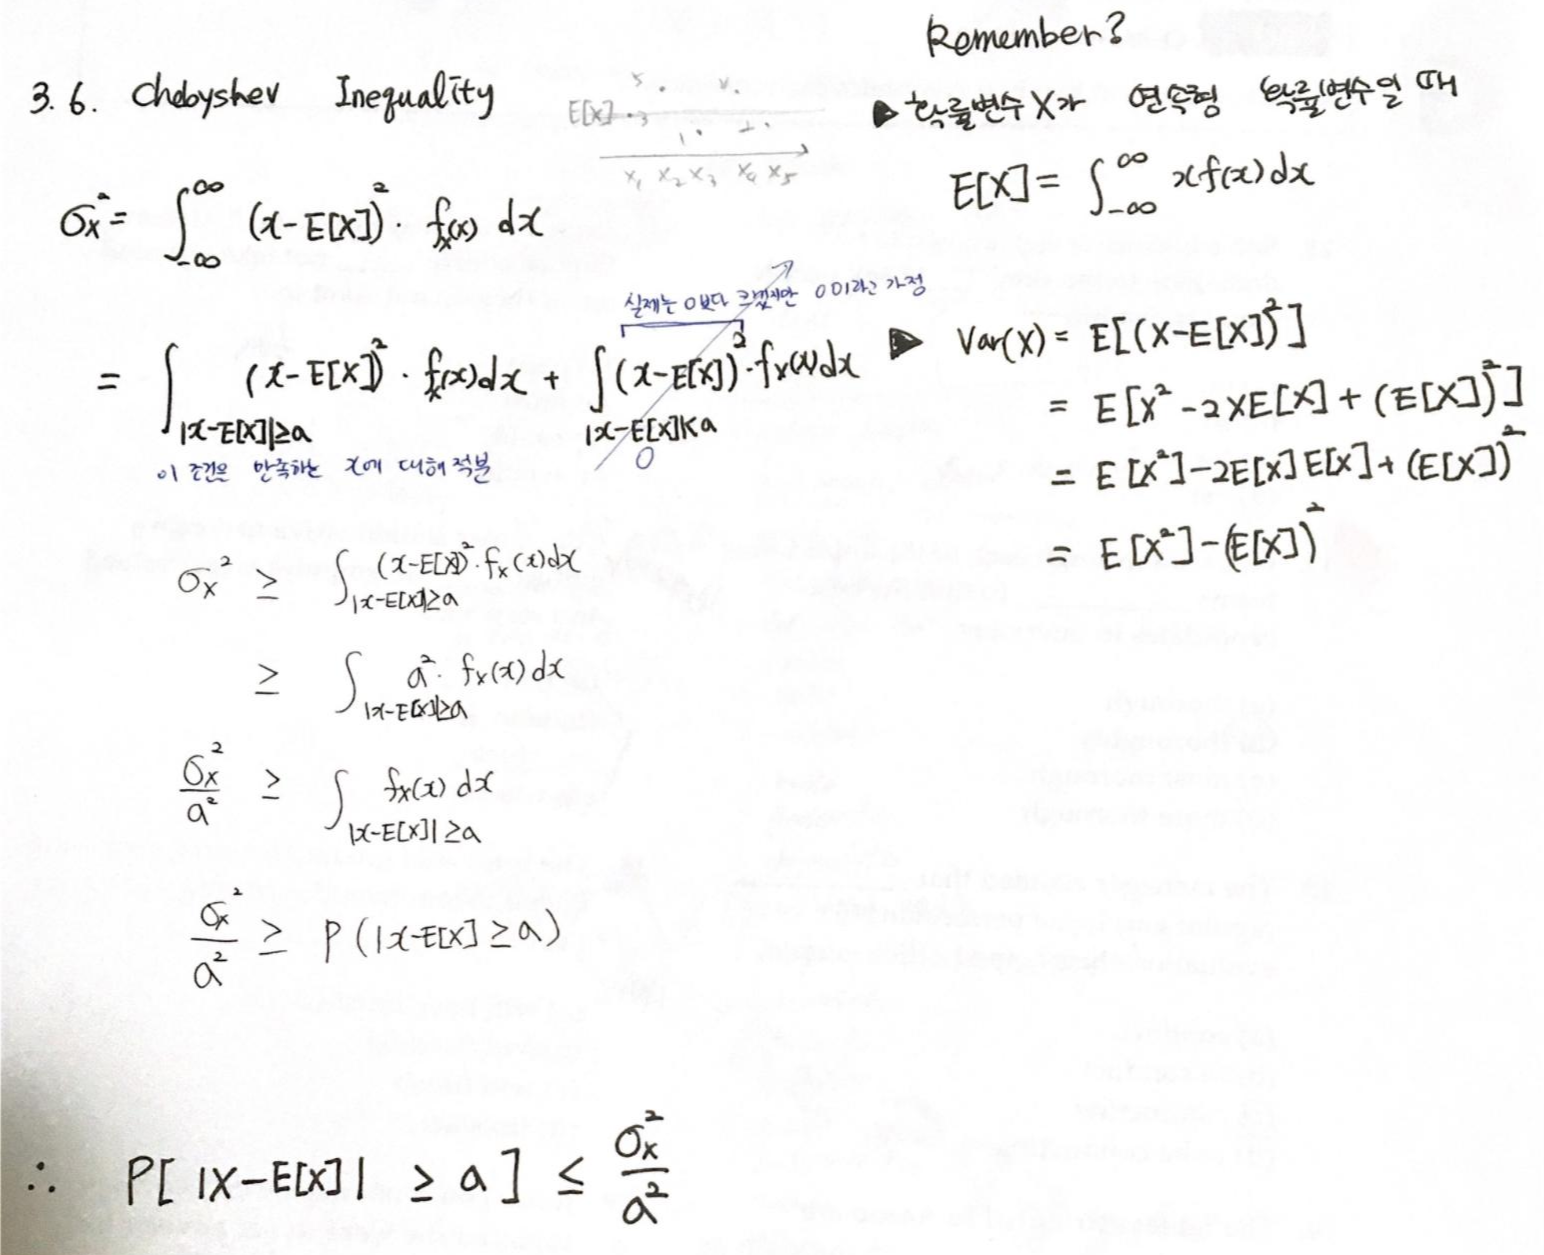 Remember?
3.6. Chebyshev Inequality
E[X]
x₁ x₂ x₃ x₄ x₅
▶ 확률변수 X가 연속형 확률변수일 때
E[X] = ∫_{-∞}^{∞} x f(x) dx
σx² = ∫_{-∞}^{∞} (x-E[X])² · fx(x) dx
실제는 0보다 크겠지만 0이라고 가정
= ∫_{|x-E[X]|≥a} (x-E[X])² · fx(x)dx + ∫_{|x-E[X]|<a} (x-E[X])² · fx(x)dx
0
이 조건을 만족하는 x에 대해 적분
▶ Var(X) = E[(X-E[X])²]
= E[X² - 2XE[X] + (E[X])²]
= E[X²] - 2E[X]E[X] + (E[X])²
= E[X²] - (E[X])²
σx² ≥ ∫_{|x-E[X]|≥a} (x-E[X])² · fx(x)dx
≥ ∫_{|x-E[X]|≥a} a² · fx(x) dx
σx²/a² ≥ ∫_{|x-E[X]|≥a} fx(x) dx
σx²/a² ≥ P(|x-E[X] ≥ a)
∴ P[ |X-E[X]| ≥ a ] ≤ σx²/a²